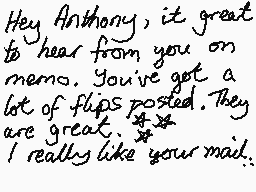 Hey Anthony, it great
to hear from you on
memo. You've got a
lot of flips posted. They
are great. ☆☆☆
I really like your mail..